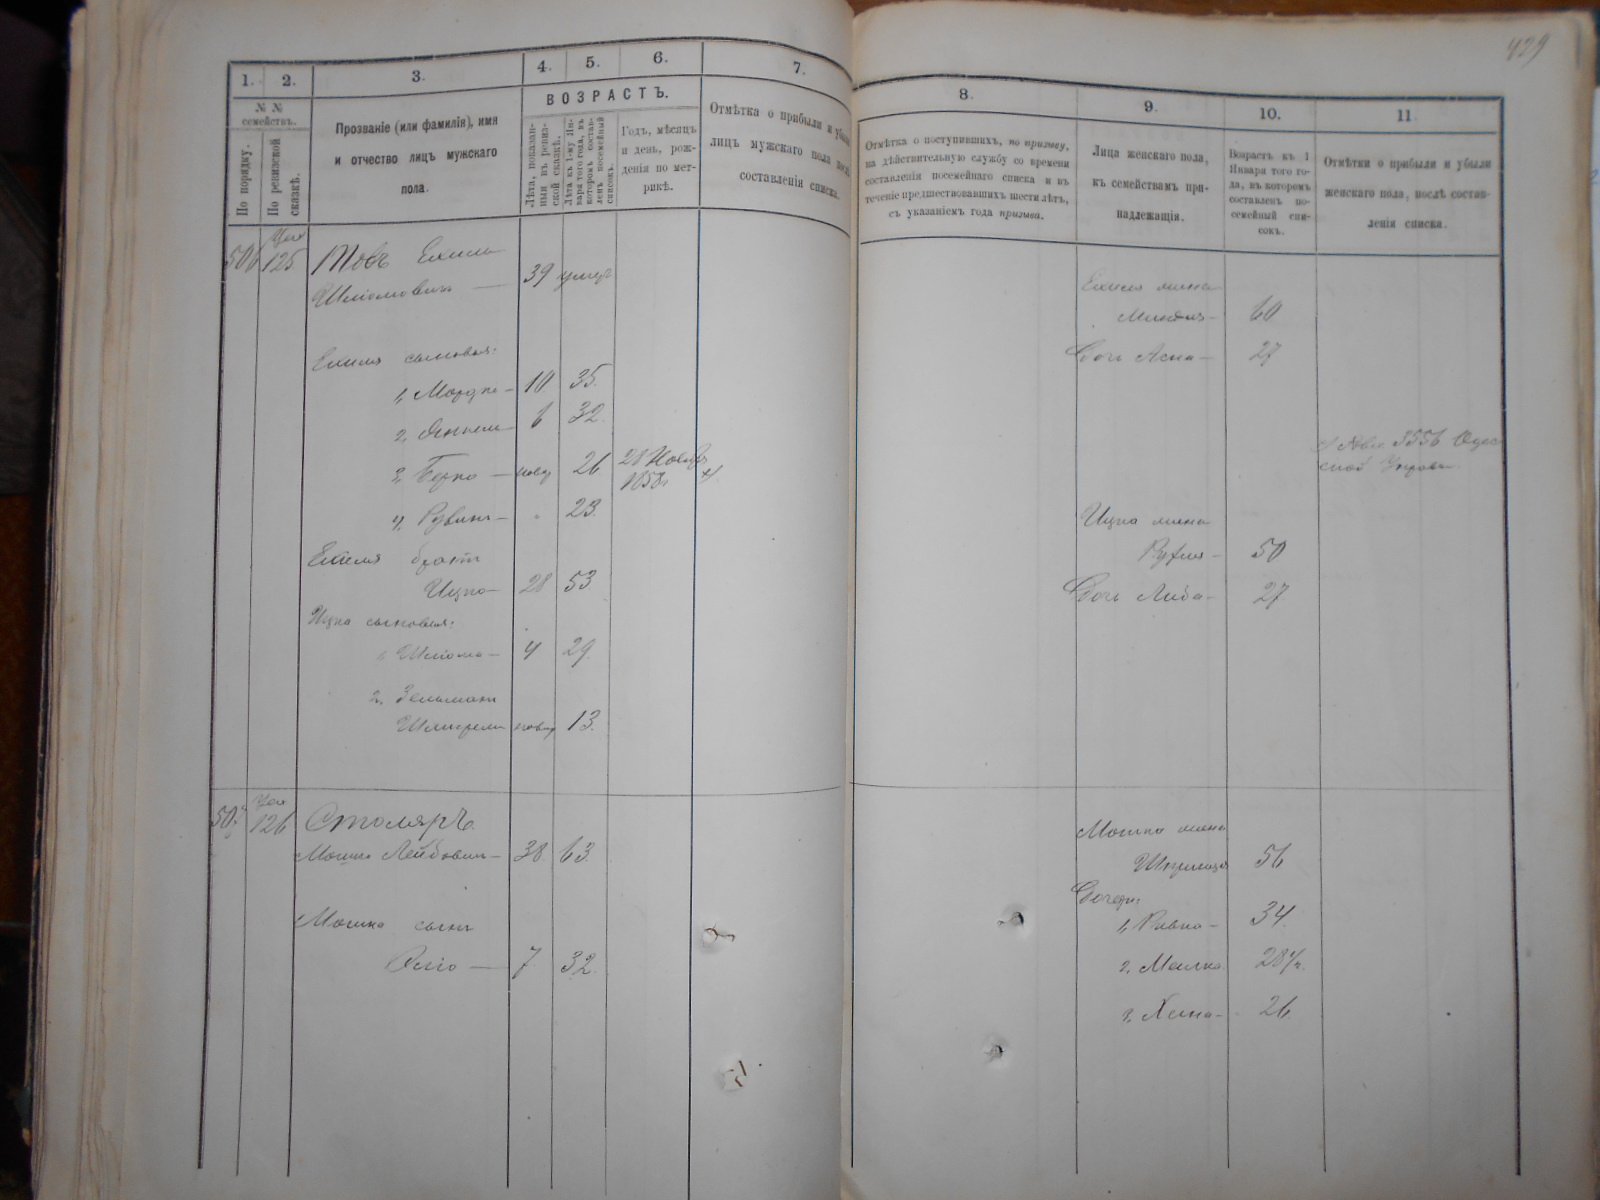 429
1. 2. 3. 4. 5. 6. 7.
№ №
семействъ.
По порядку.
По ревизской
сказкѣ.
Прозваніе (или фамилія), имя
и отчество лицъ мужскаго
пола.
ВОЗРАСТЪ.
Лѣта, показан-
ныя въ ревиз-
ской сказкѣ.
Лѣта къ 1-му Ян-
варя того года, въ
которомъ состав-
ленъ посемейный
списокъ.
Годъ, мѣсяцъ
и день, рож-
денія по мет-
рикѣ.
Отмѣтка о прибыли и убыли
лицъ мужскаго пола послѣ
составленія списка.
506 125 Товъ Ехиль
Шліомовичъ — 39 умер
Ехиля сыновья:
1, Мордко — 10 35.
2, Янкель 6 32
3, Берко — новор 26 28 Ноябр
1858 г
4, Рувинъ — 23.
Ехиля братъ
Ицко — 28 53
Ицка сыновья:
1, Шліома — 4 29.
2, Зельманъ
новор 13.
507 126 Столяръ
Мошко Лейбовичъ — 38 63.
Мошка сынъ
— 7 32.
8. 9. 10. 11
Отмѣтка о поступившихъ, по призыву,
на дѣйствительную службу со времени
составленія посемейнаго списка и въ
теченіе предшествовавшихъ шести лѣтъ,
съ указаніемъ года призыва.
Лица женскаго пола,
къ семействамъ при-
надлежащія.
Возрастъ къ 1
Января того го-
да, въ которомъ
составленъ по-
семейный спи-
сокъ.
Отмѣтки о прибыли и убыли
женскаго пола, послѣ состав-
ленія списка.
Ехиля жена
60
Дочь Асна — 27
3556 Одес
ской Управы
Ицка жена
Рухля — 50
Дочь Либа — 27.
Мошка жена
56
Дочери:
1, Ривка — 34.
2, Малка 28
3, Хана — 26.